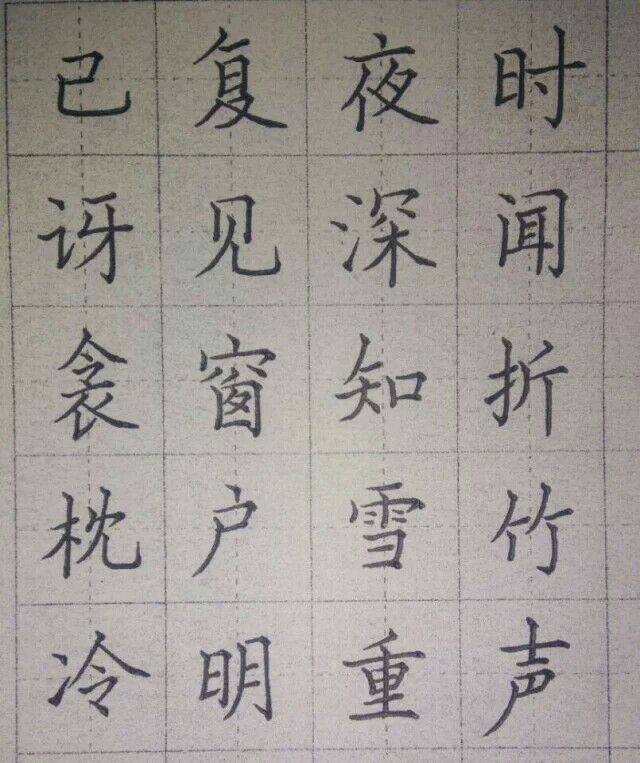 已讶衾枕冷
复见窗户明
夜深知雪重
时闻折竹声